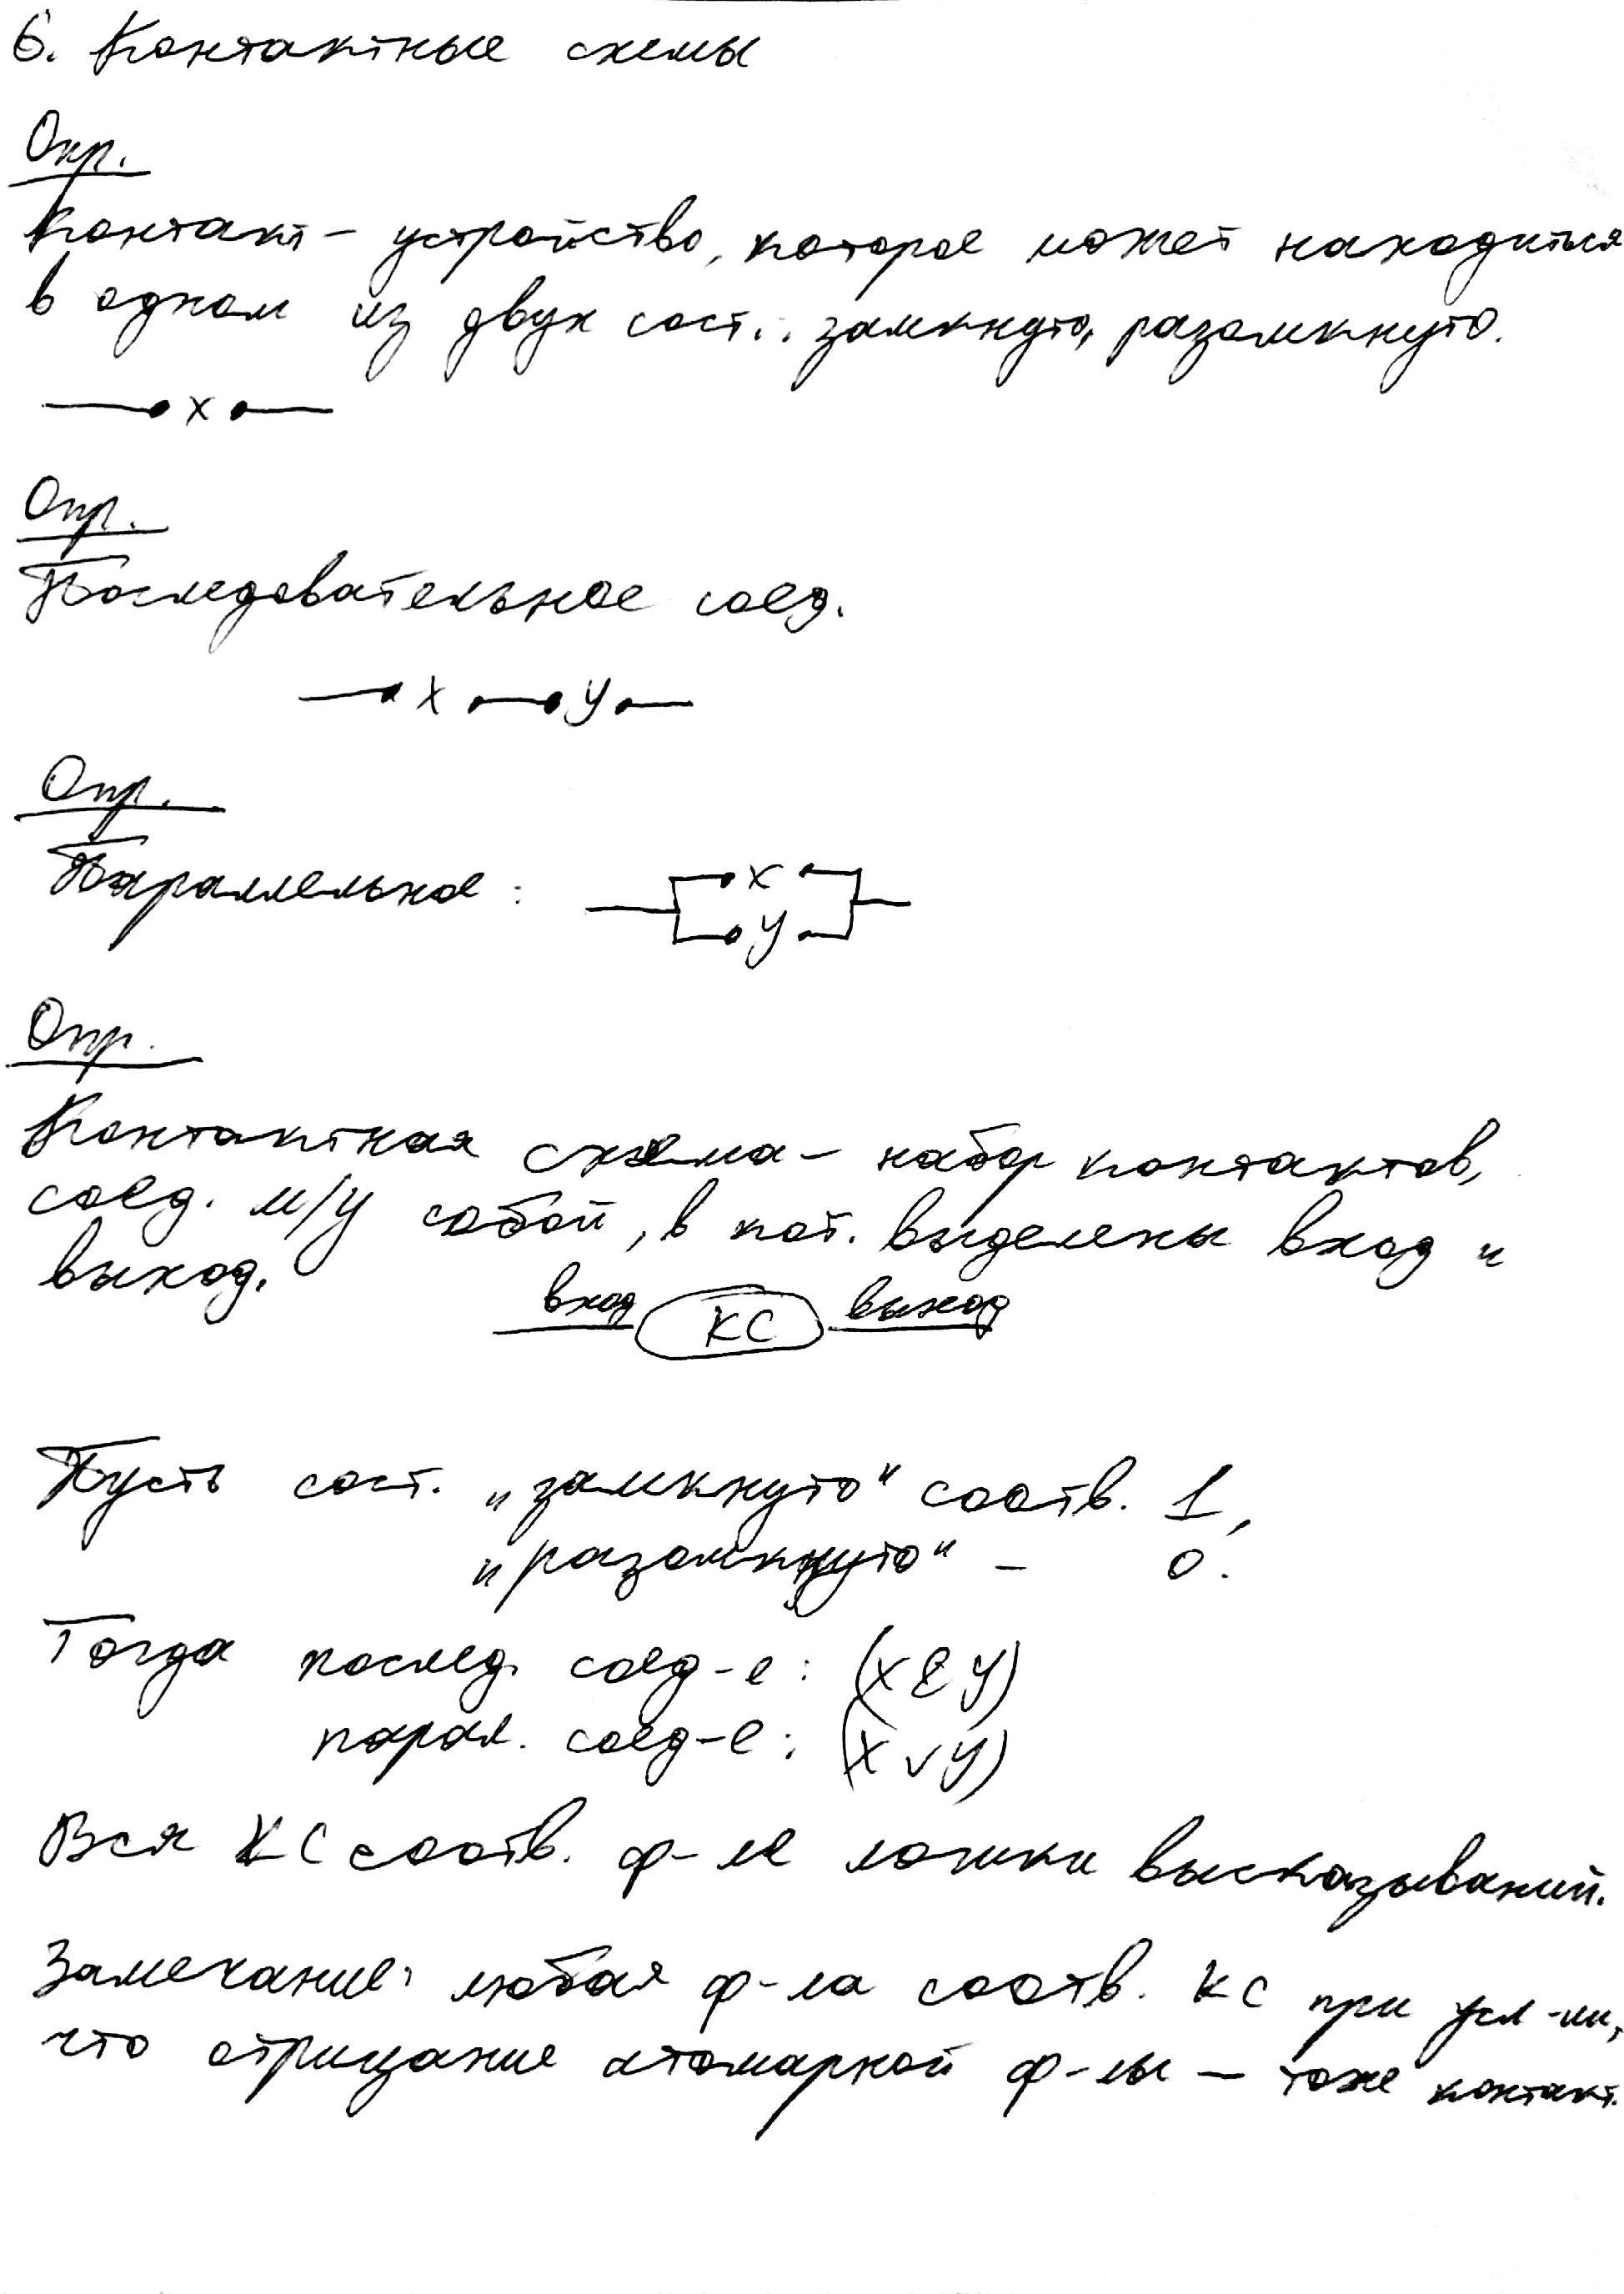 6. Контактные схемы
Опр.
Контакт – устройство, которое может находиться
в одном из двух сост.: замкнуто, разомкнуто.
x
Опр.
Последовательное соед.
x y
Опр.
Параллельное:
x
y
Опр.
Контактная схема – набор контактов,
соед. м/у собой, в кот. выделены вход и
выход.
вход КС выход
Пусть сост. „замкнуто“ соотв. 1,
„разомкнуто“ – 0.
Тогда послед. соед-е: (x & y)
парал. соед-е: (x ∨ y)
Вся КС соотв. ф-ле логики высказываний.
Замечание: любая ф-ла соотв. КС при усл-ии,
что отрицание атомарной ф-лы – тоже контакт.